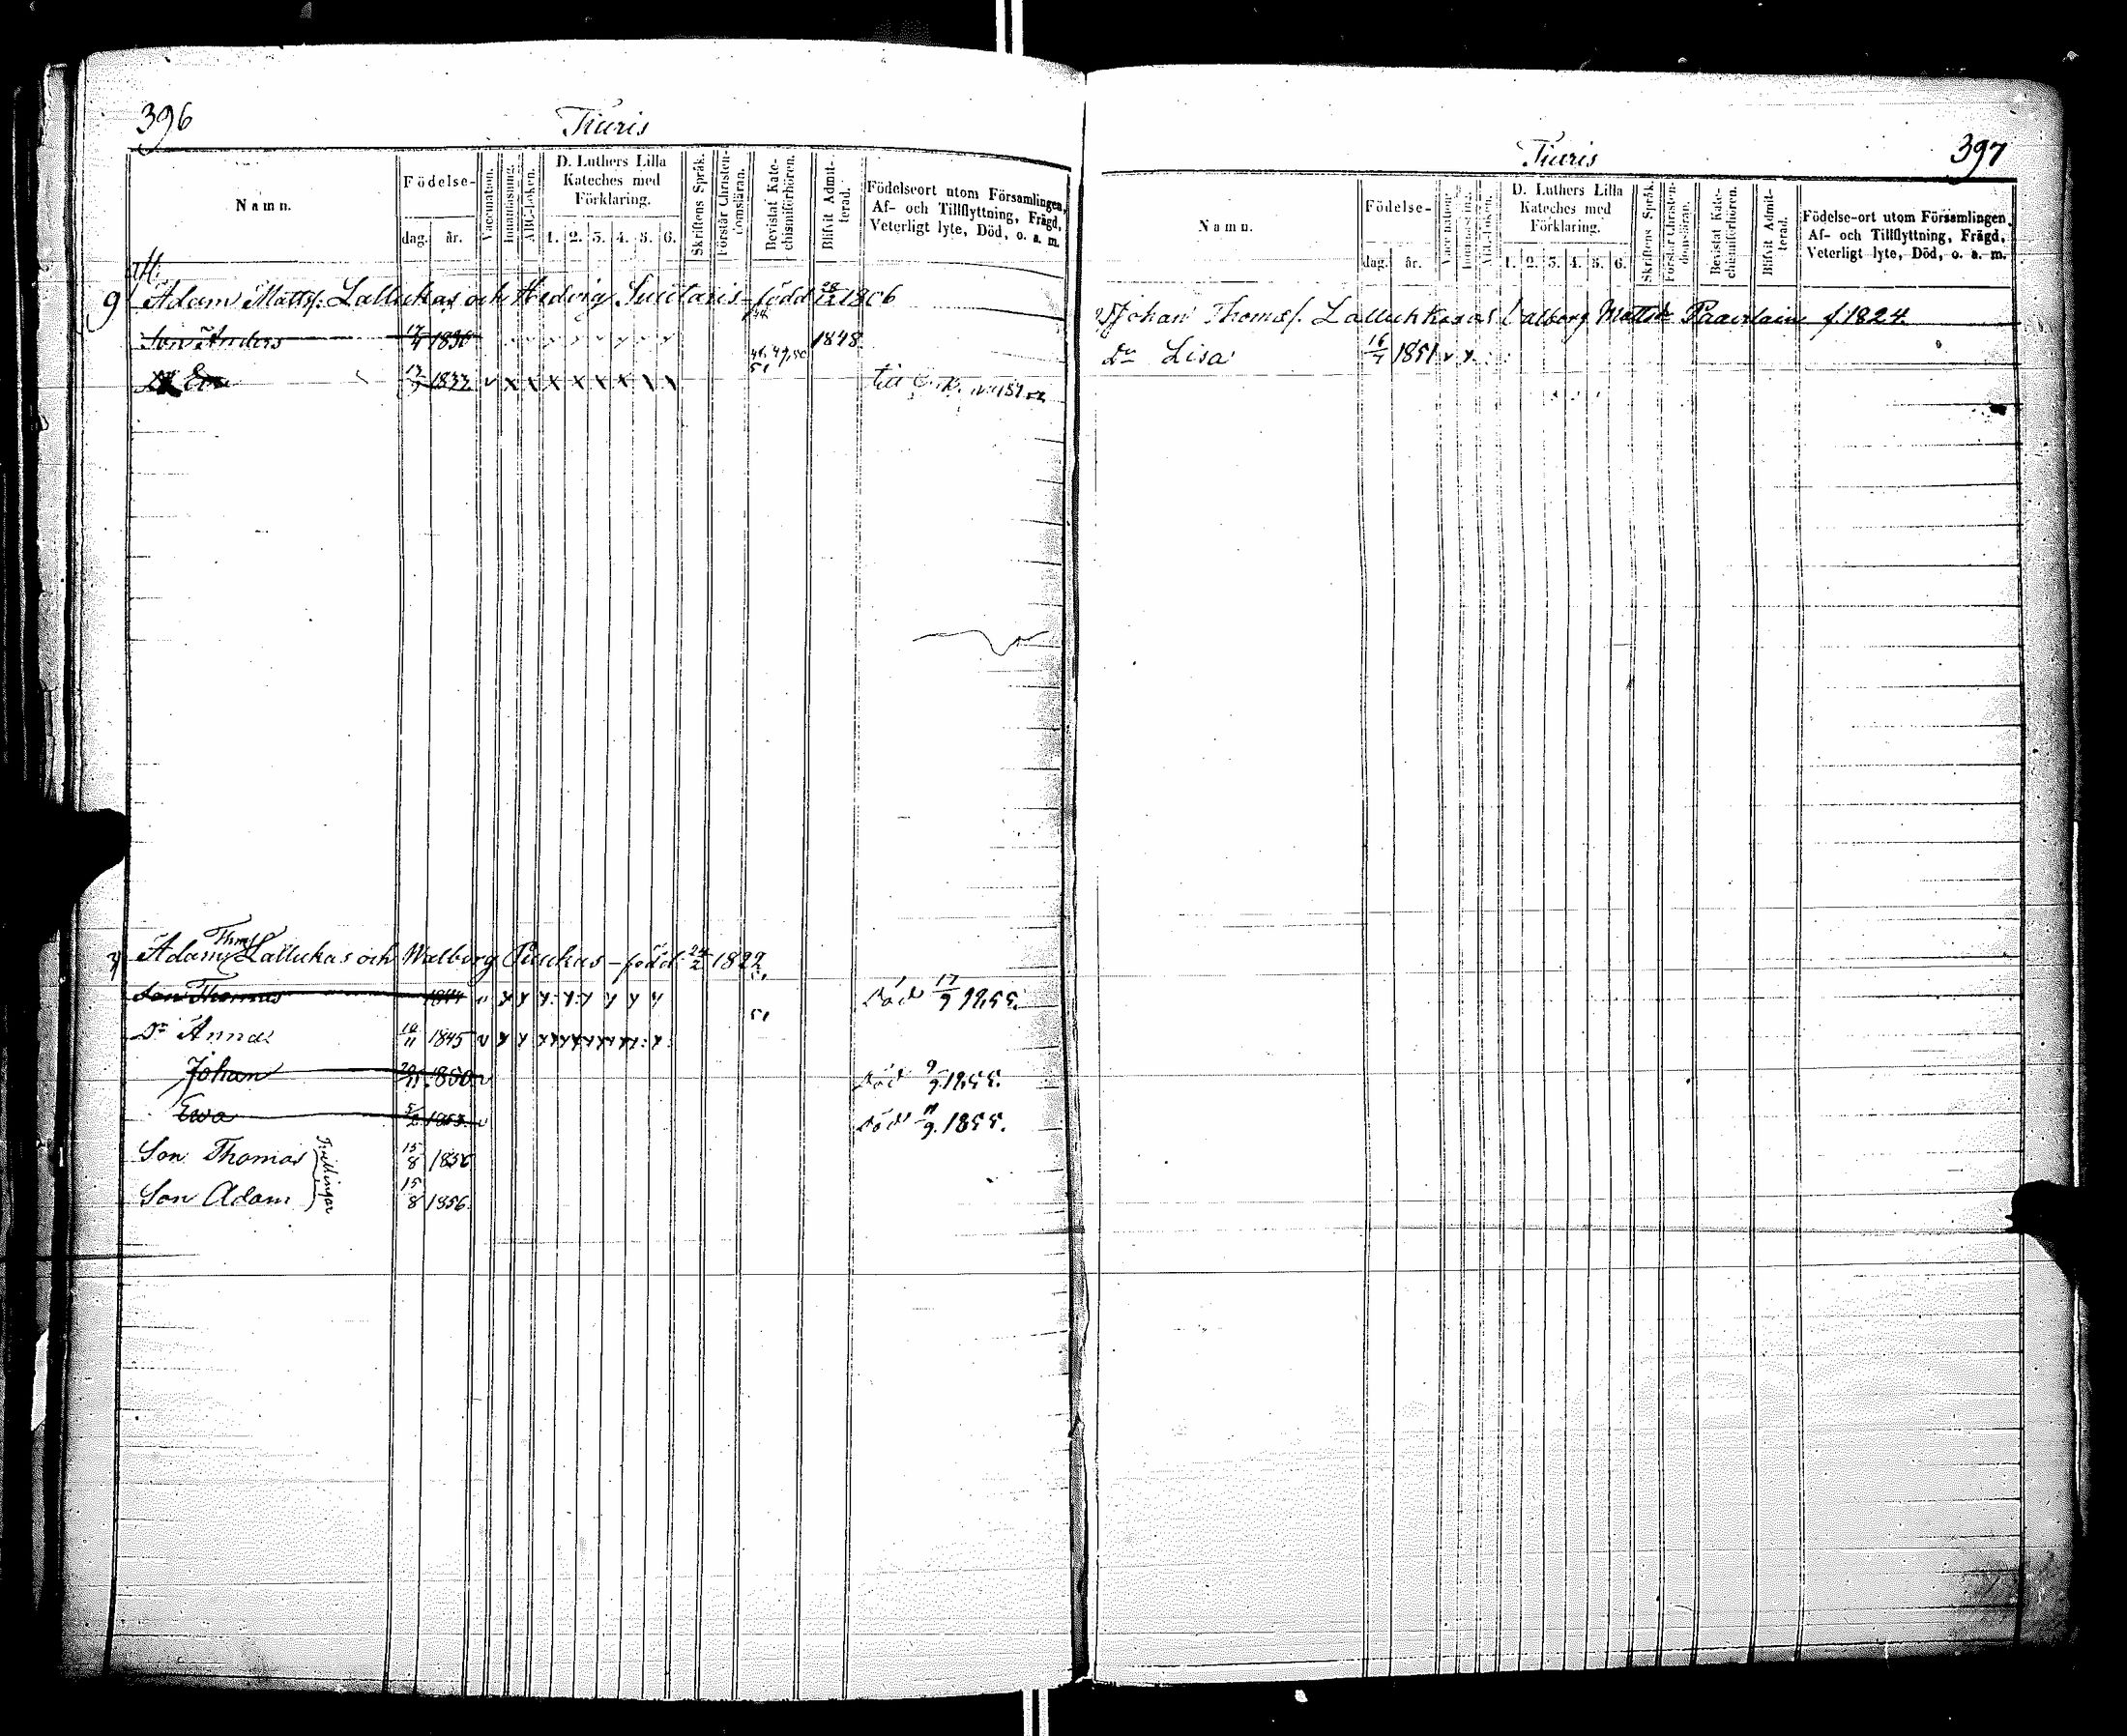 396
Tiuris
Namn.
Födelse-
dag.
år.
Vaccination.
Innanläsning.
ABC-boken.
D. Luthers Lilla
Kateches med
Förklaring.
1. 2. 3. 4. 5. 6.
Skriftens Språk.
Förstår Christen-
domsläran.
Bevistat Kate-
chismiförhören.
Blifvit Admit-
terad.
Födelseort utom Församlingen,
Af- och Tillflyttning, Frägd,
Veterligt lyte, Död, o. a. m.
9 Adam Mattss. Lallukas och Hedvig född 28/12 1806
Son Anders 17/4 1830 1848
till
Thoms.
Adam Lallukas och Walborg Puukus - född 24/2 1822
Son Thomas 1844 v x x x x x x x x 51 Död 17/9 1855.
Dr Anna 10/11 1845 v x x
Johan 1850 v Död 9/9 1855.
Ewa 5/2 1853 v Död 11/9 1855.
Son Thomas 15/8 1856
Son Adam 15/8 1856.
Tvillingar
Tiuris
397
Namn.
Födelse-
dag.
år.
Vaccination.
Innanläsning.
ABC-boken.
D. Luthers Lilla
Kateches med
Förklaring.
1. 2. 3. 4. 5. 6.
Skriftens Språk.
Förstår Christen-
domsläran.
Bevistat Kate-
chismiförhören.
Blifvit Admit-
terad.
Födelse-ort utom Församlingen,
Af- och Tillflyttning, Frägd,
Veterligt lyte, Död, o. a. m.
Johan Thomss. Lalluhka Walborg Mattsdr f. 1824.
Dr Lisa 16/7 1851 v x